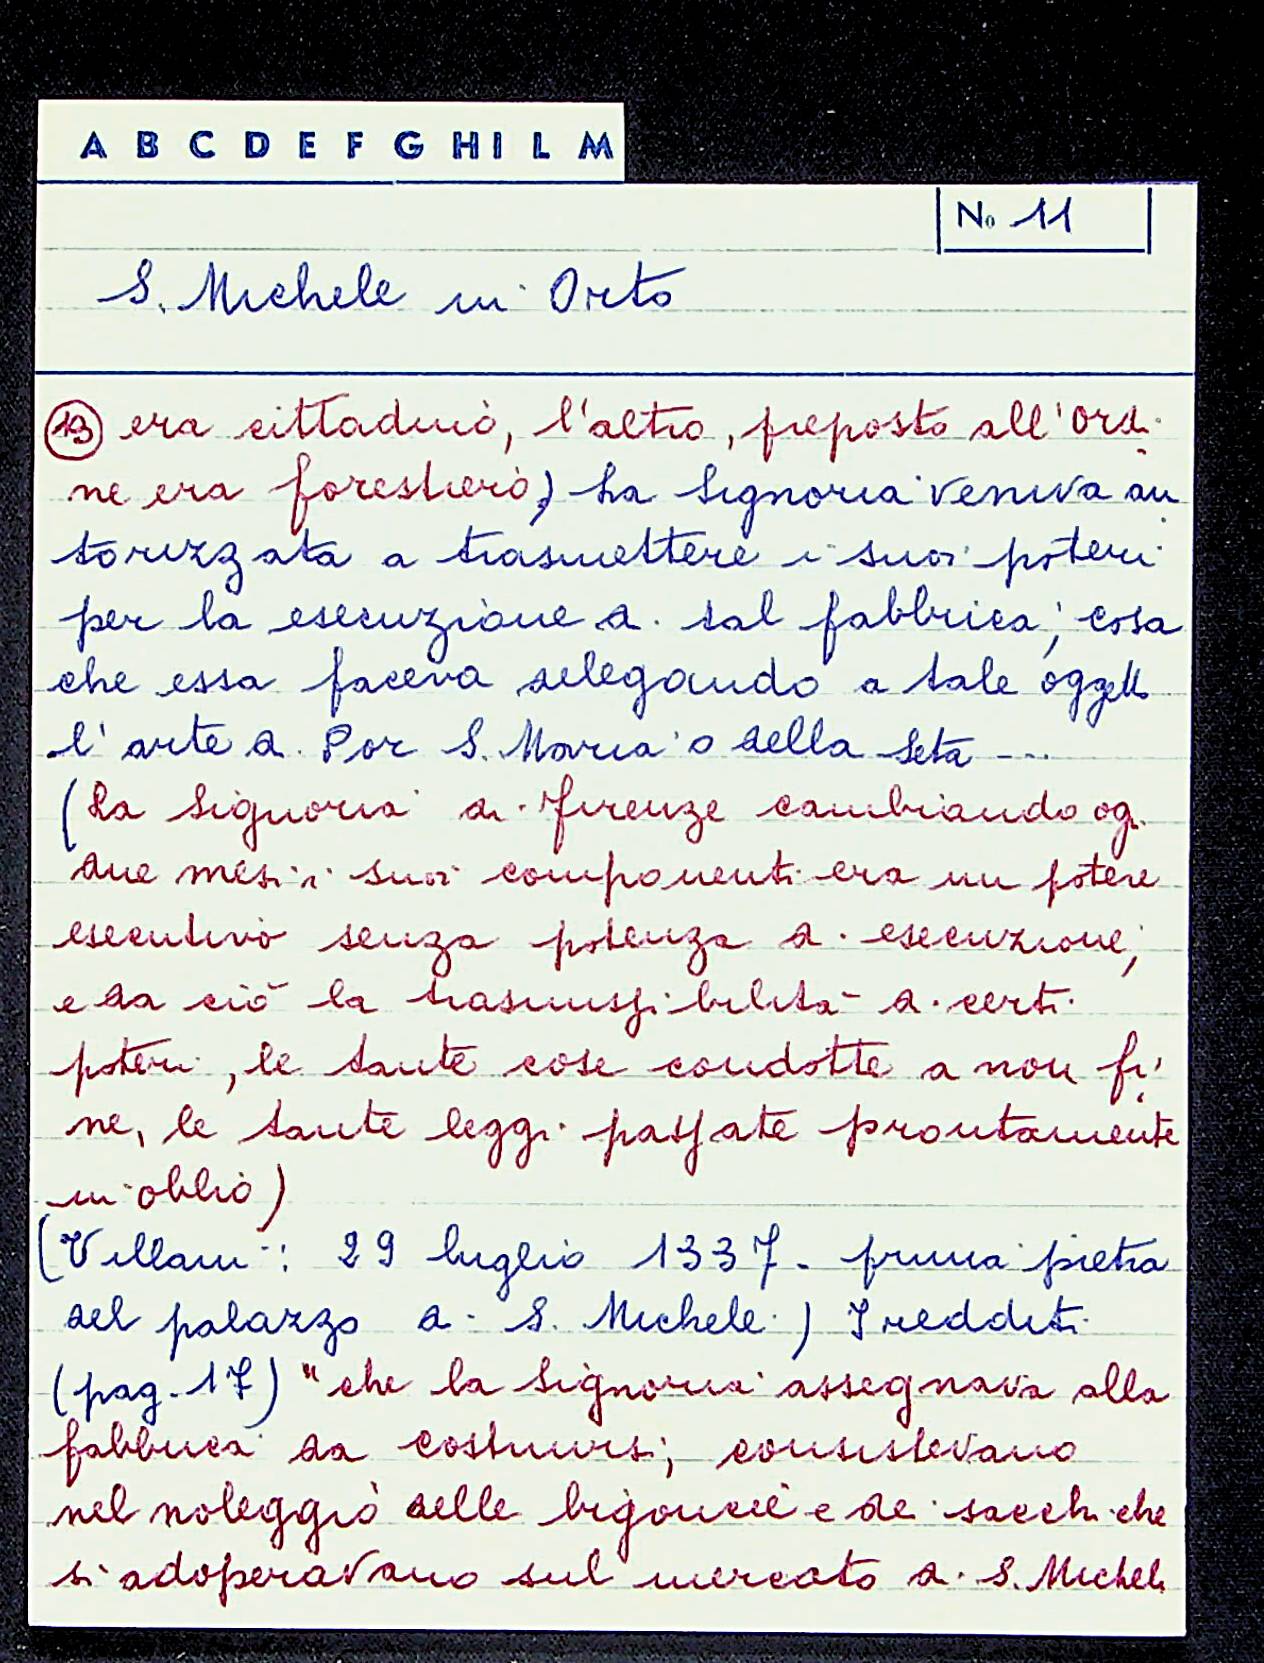 A B C D E F G H I L M
No 11
S. Michele in Orto
(13) era cittadino, l'altro, preposto all'ordi
ne era forestiero) La Signoria veniva au
torizzata a trasmettere i suoi poteri
per la esecuzione di tal fabbrica; cosa
che essa faceva delegando a tale oggetto
l'arte di Por S. Maria o della Seta ....
(La Signoria di Firenze cambiando ogi
due mesi i suoi componenti era un potere
esecutivo senza potenza di esecuzione;
e da ciò la trasmissibilità di certi
poteri, le tante cose condotte a non fi
ne, le tante leggi passate prontamente
in oblio)
(Villani: 29 luglio 1337 - prima pietra
del palazzo di S. Michele) I redditi
(pag. 17) "che la Signoria assegnava alla
fabbrica da costruirsi; consistevano
nel noleggio delle bigoncie e dei sacchi che
si adoperavano sul mercato di S. Michele